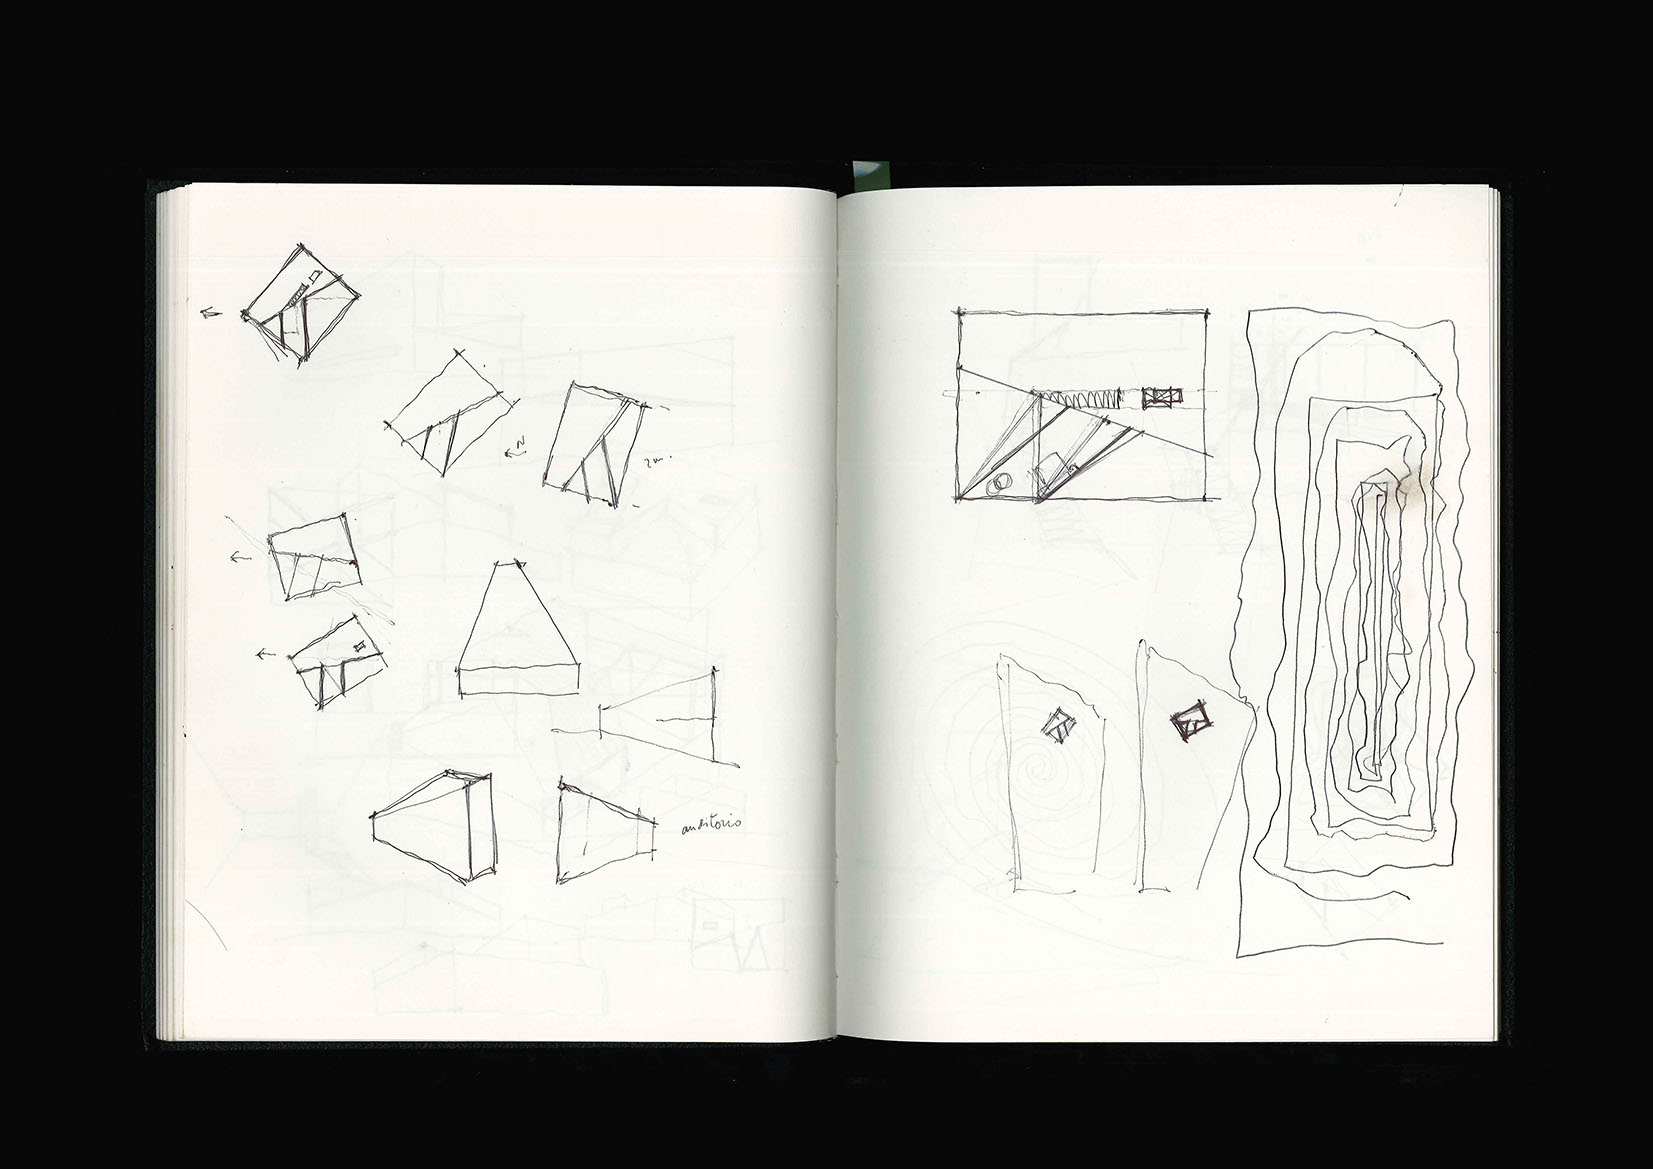 N
auditorio